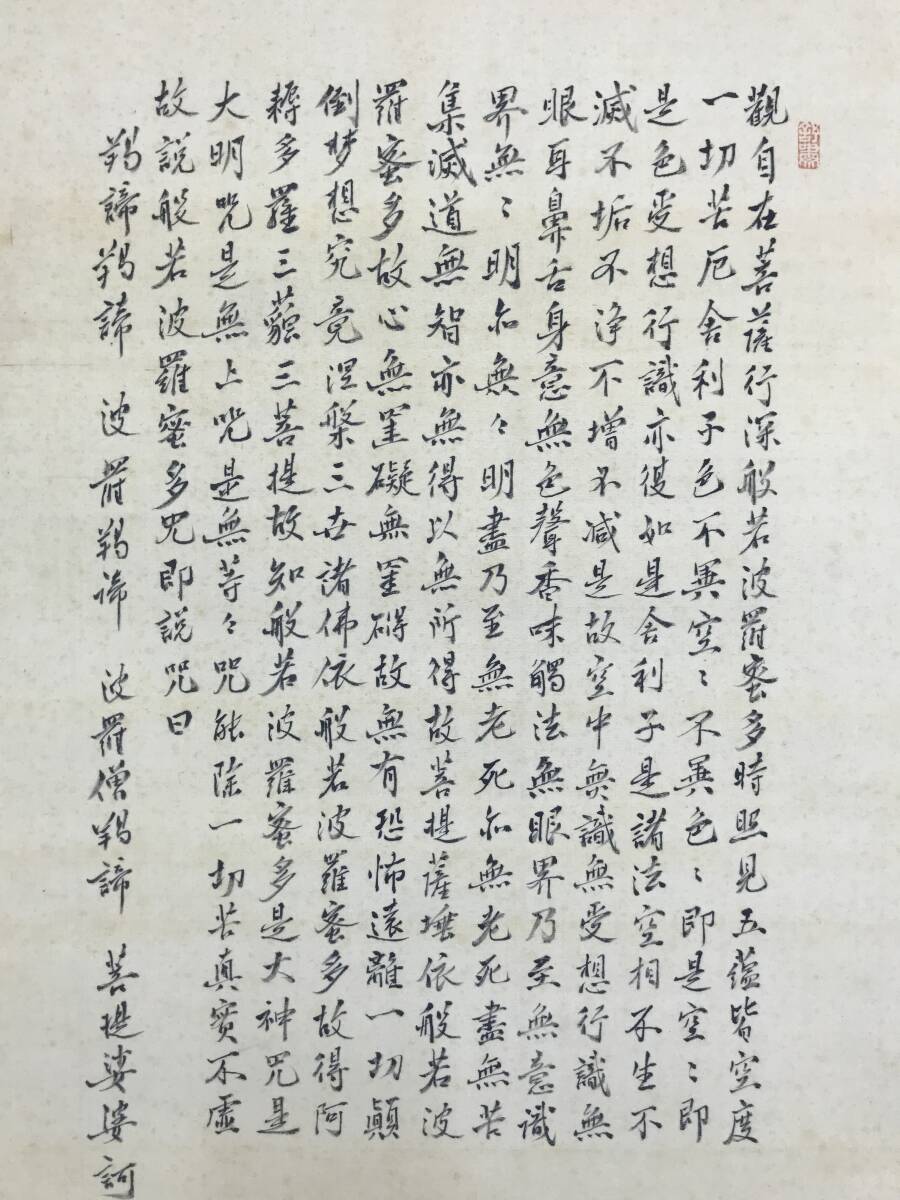 觀自在菩薩行深般若波羅蜜多時照見五蘊皆空度
一切苦厄舍利子色不異空〻不異色〻即是空〻即
是色受想行識亦復如是舍利子是諸法空相不生不
滅不垢不淨不增不减是故空中無識無受想行識無
眼耳鼻舌身意無色聲香味觸法無眼界乃至無意識
界無〻明亦無〻明盡乃至無老死亦無老死盡無苦
集滅道無智亦無得以無所得故菩提薩埵依般若波
羅蜜多故心無罣礙無罣碍故無有恐怖遠離一切顛
倒梦想究竟涅槃三世諸佛依般若波羅蜜多故得阿
耨多羅三藐三菩提故知般若波羅蜜多是大神咒是
大明咒是無上咒是無等〻咒能除一切苦真實不虛
故說般若波羅蜜多咒即說咒曰
羯諦羯諦 波羅羯諦 波羅僧羯諦 菩提娑婆訶